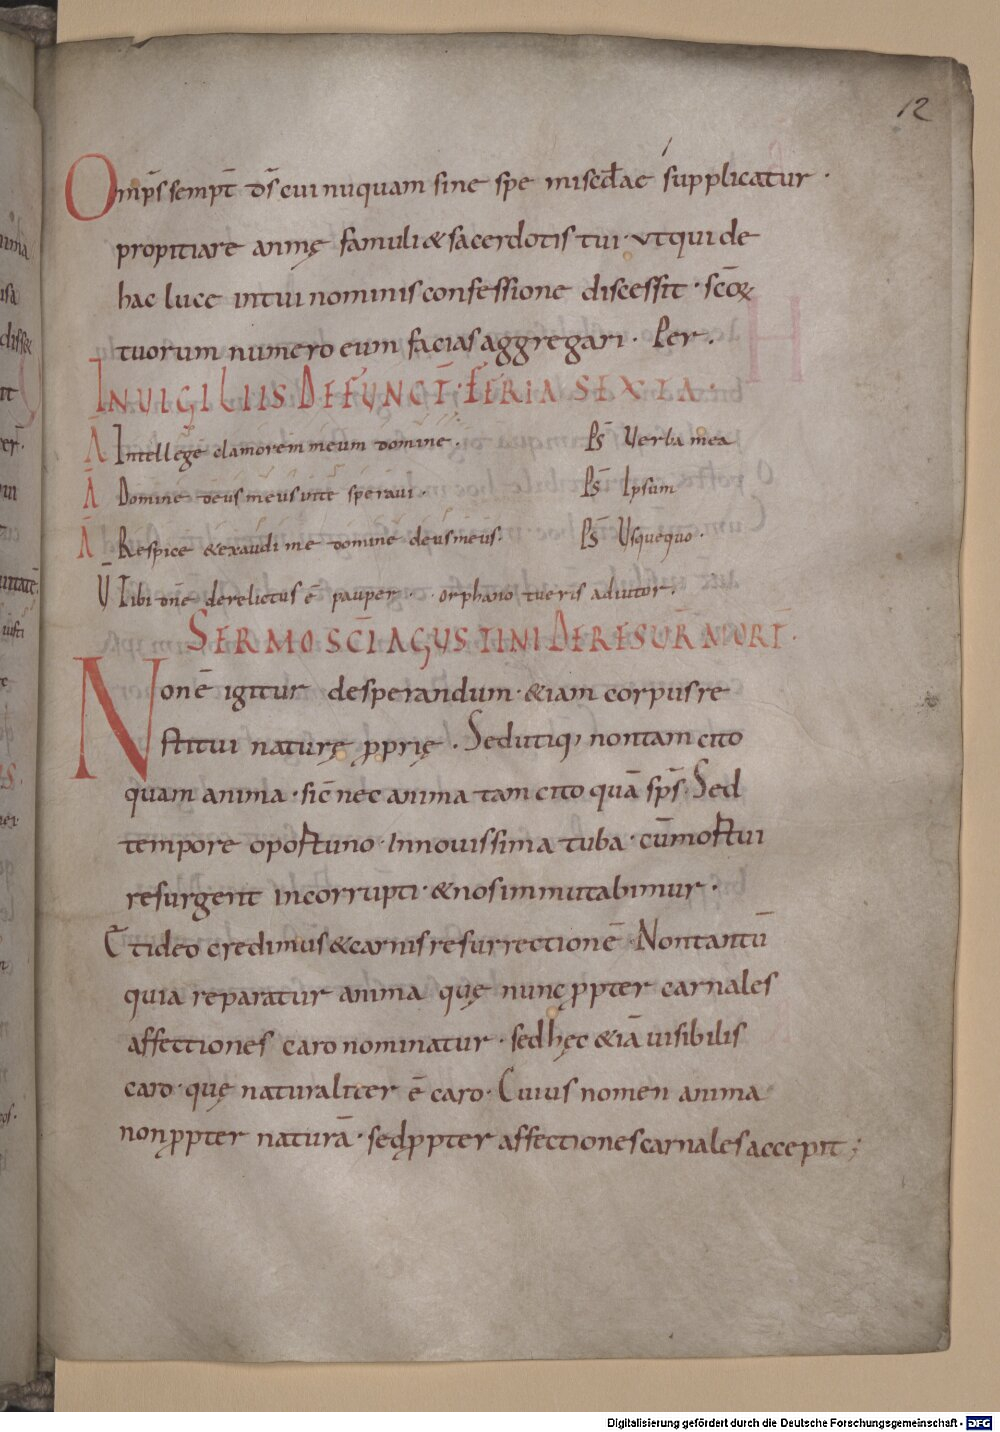 12
Omp̄s sempt̄ d̄s cui nuquam sine spe misc̄dae supplicatur ·
propitiare animę famuli & sacerdotis tui · ut qui de
hac luce in tui nominis confessione discessit · sc̄o&
tuorum numero eum facias aggregari · Per ·
IN VIGILIIS DEFUNCT̄ · FERIA SEXTA ·
Ā Intellege clamorem meum domine · Ps̄ Verba mea
Ā Domine deus meus in te speravi · Ps̄ Ipsum
Ā Respice & exaudi me domine deus meus · Ps̄ Usquequo ·
V̄ Tibi dn̄e derelictus ē pauper · orphano tu eris adiutor ·
SERMO SC̄I AGUSTINI DE RESUR̄ MORT̄ ·
Non ē igitur desperandum · &iam corpus re
stitui naturę p̱prię · Sed utiq; non tam cito
quam anima · sic̄ nec anima tam cito quā sp̄s · Sed
tempore oportuno · In novissima tuba · cū mortui
resurgent incorrupti · & nos immutabimur ·
Et ideo credimus & carnis resurrectionē · Non tantū
quia reparatur anima quę nunc p̱pter carnales
affectiones caro nominatur · sed hęc &iā visibilis
caro · quę naturaliter ē caro · Cuius nomen anima
non p̱pter naturā · sed p̱pter affectiones carnales accepit ;
Digitalisierung gefördert durch die Deutsche Forschungsgemeinschaft - DFG